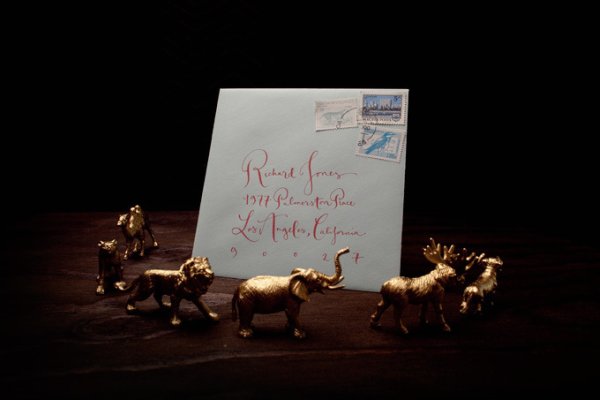 Richard Jones
1977 Palmerston Place
Los Angeles, California
90027